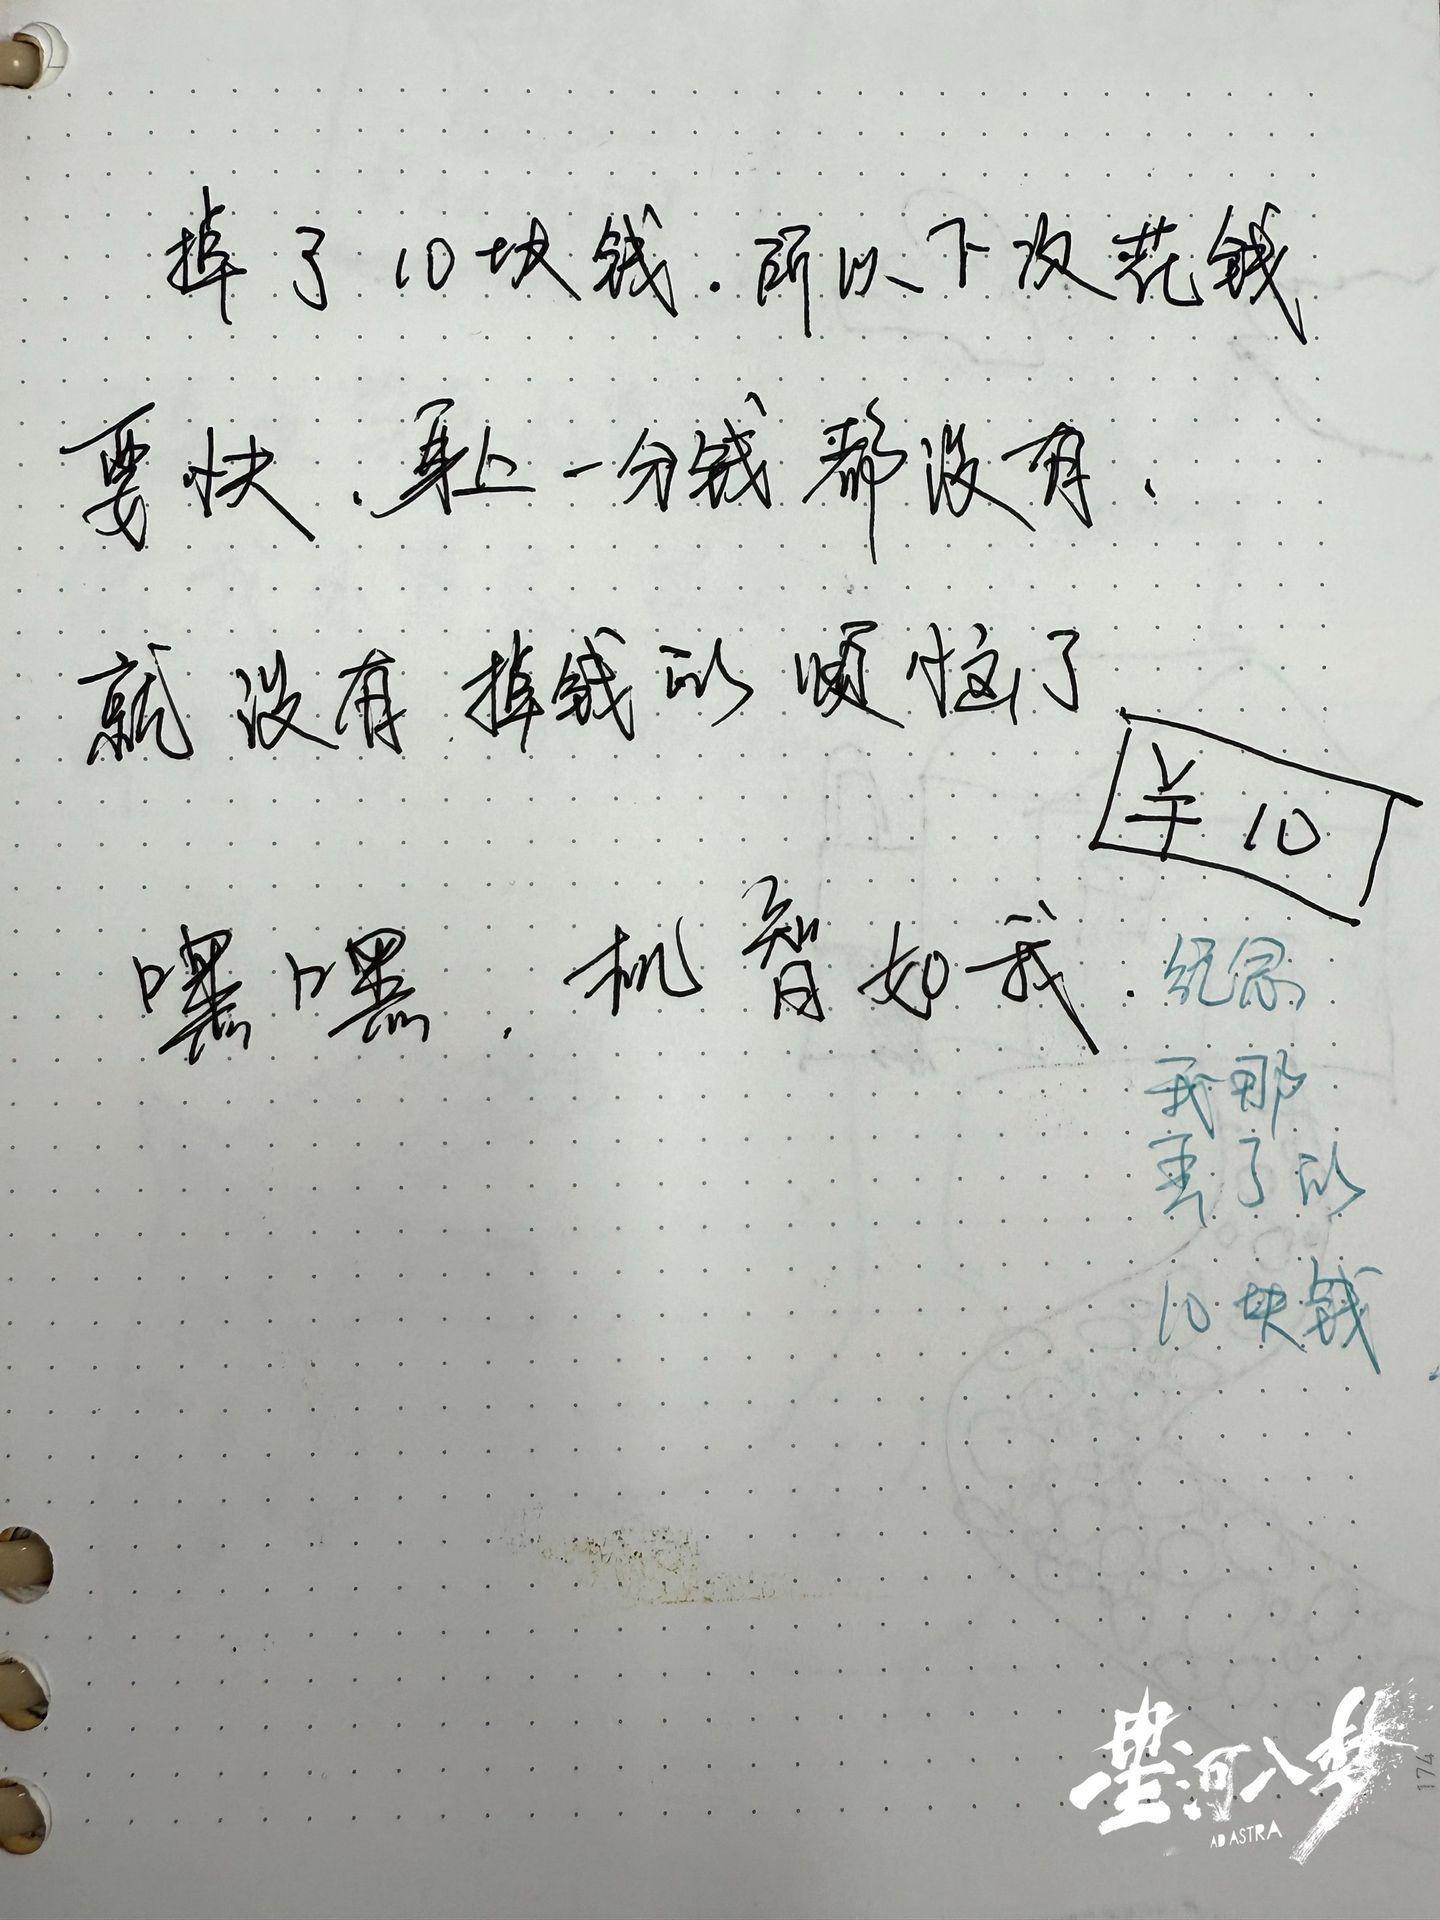 掉了10块钱.所以下次花钱
要快.身上一分钱都没有.
就没有掉钱的烦恼了
¥10
嘿嘿,机智如我.
纪念
我那
丢了的
10块钱.
星河入梦
AD ASTRA
174